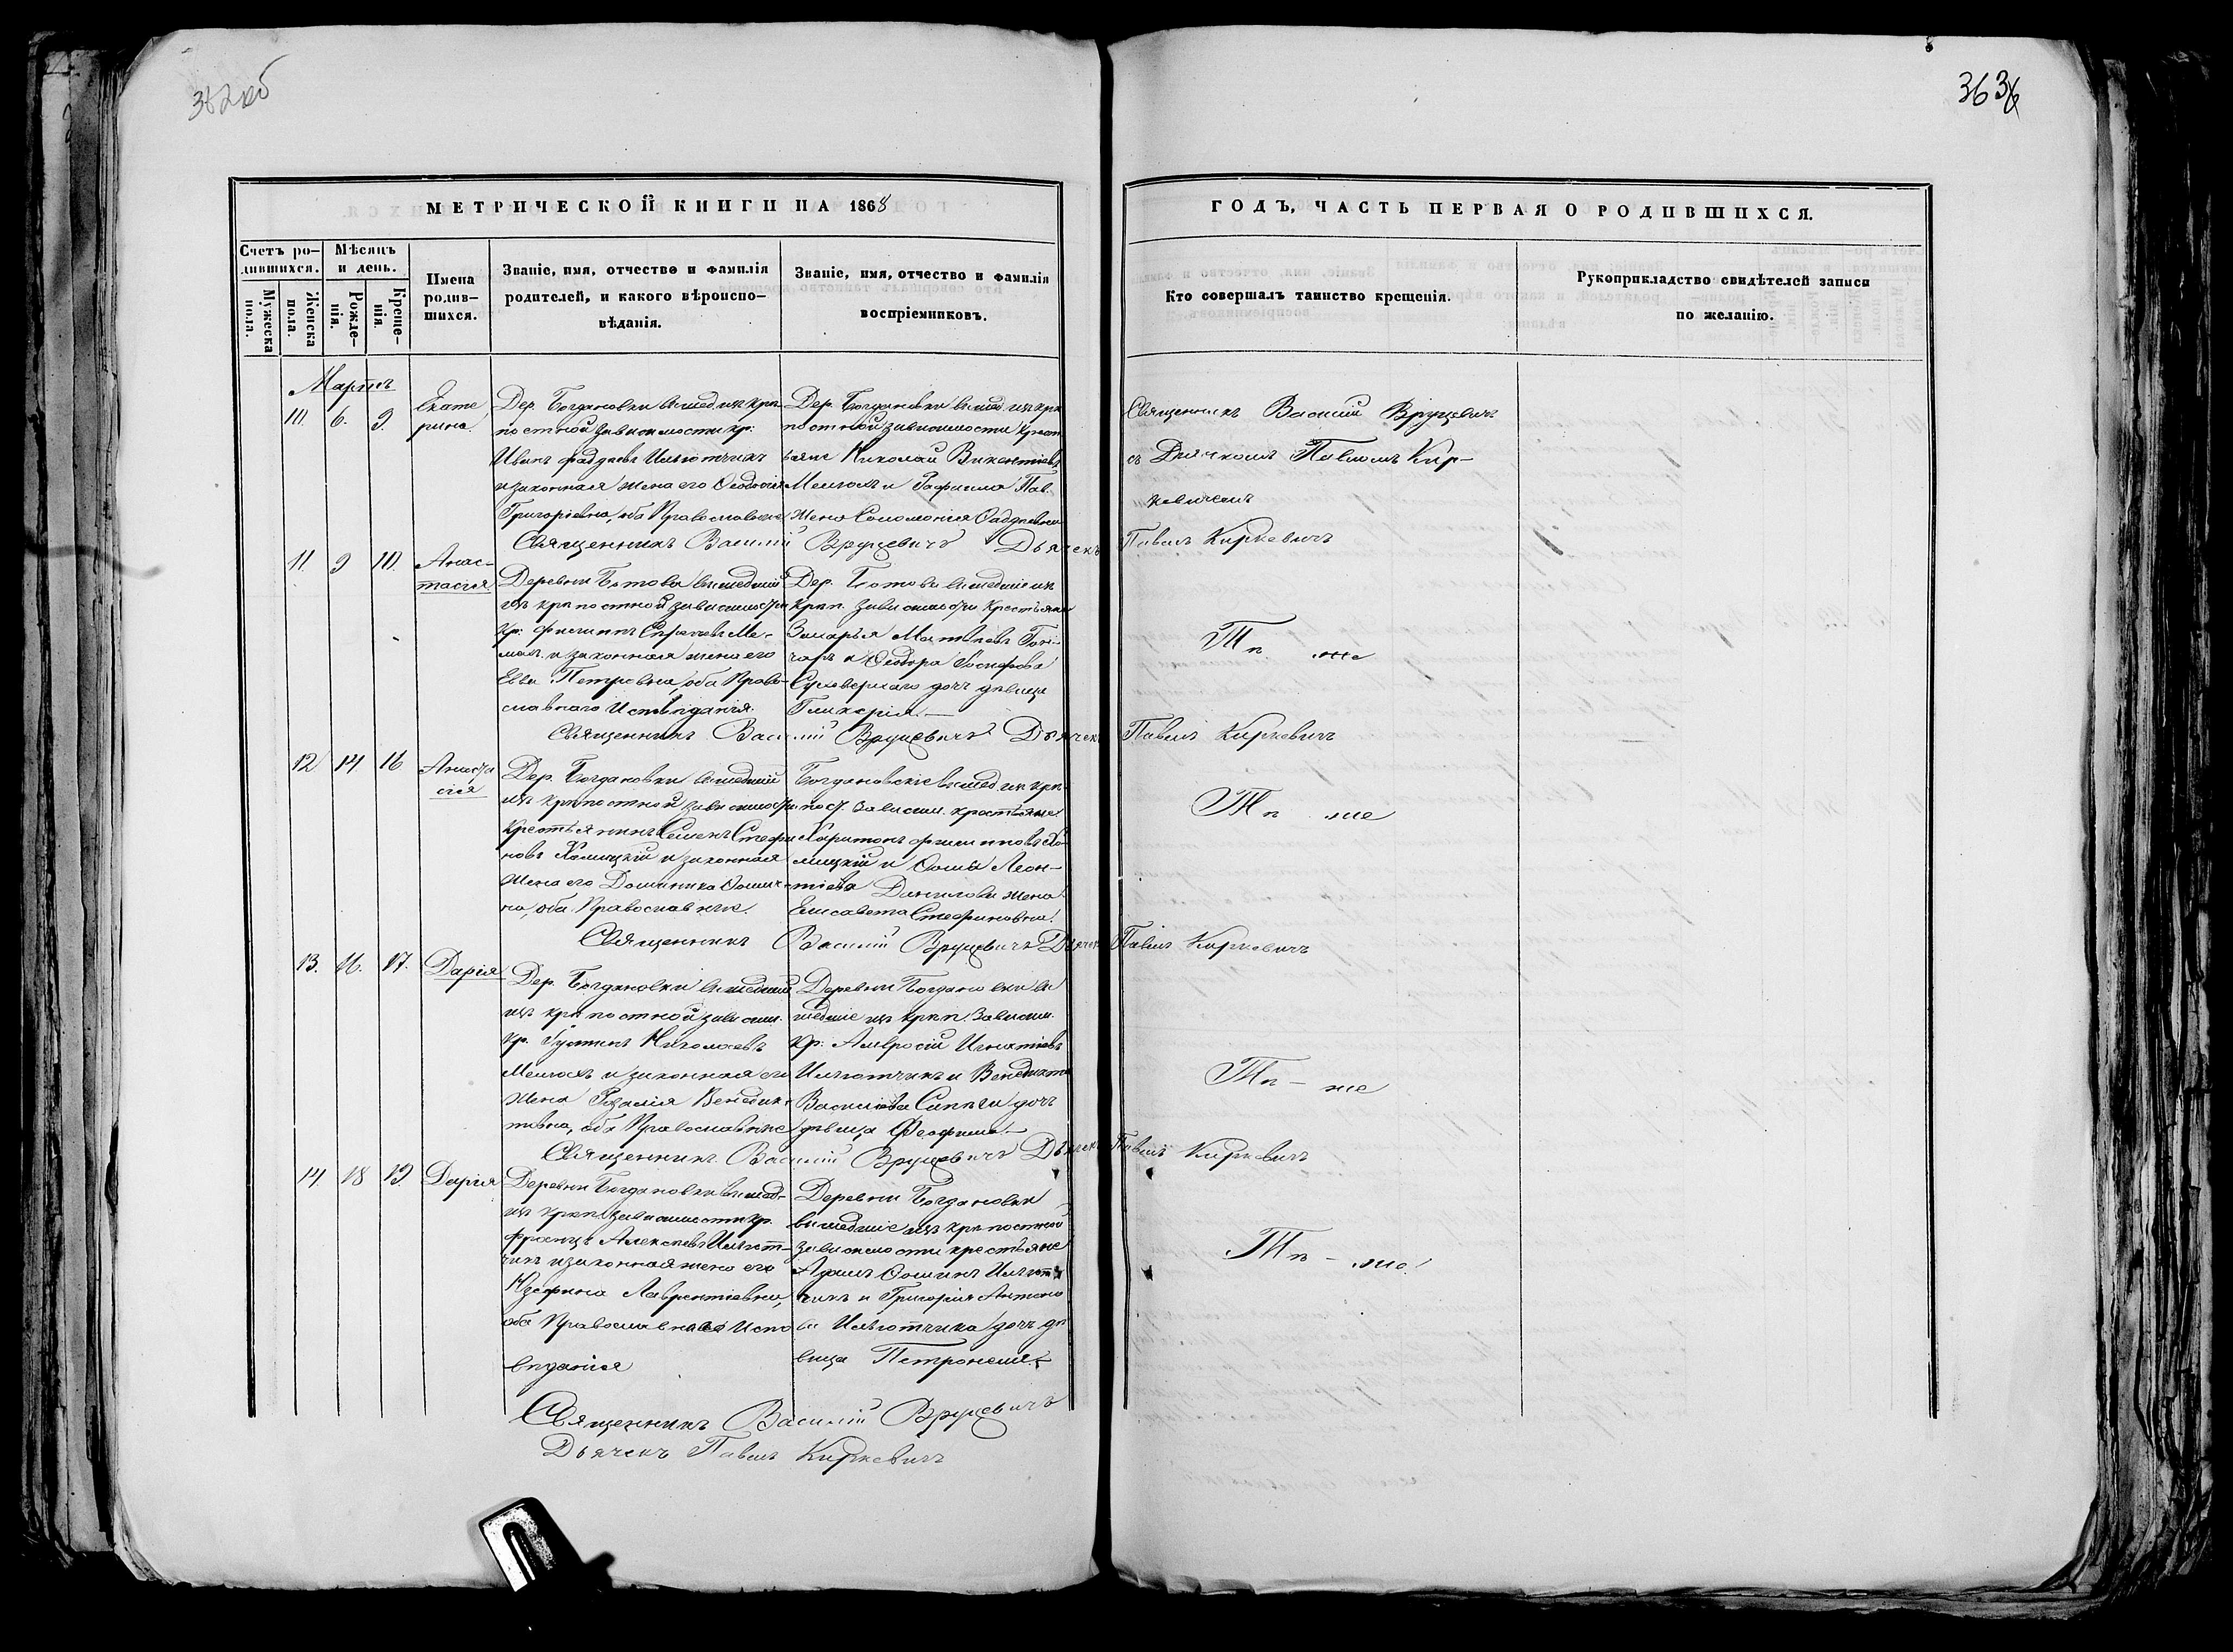 362об
363
МЕТРИЧЕСКОЙ КНИГИ НА 1868
ГОДЪ, ЧАСТЬ ПЕРВАЯ О РОДИВШИХСЯ.
Счетъ ро-
дившихся.
Мужеска
пола.
Женска
пола.
Мѣсяцъ
и день.
Рожде-
нія.
Креще-
нія.
Имена
родив-
шихся.
Званіе, имя, отчество и фамилія
родителей, и какого вѣроиспо-
вѣданія.
Званіе, имя, отчество и фамилія
воспріемниковъ.
Кто совершалъ таинство крещенія.
Рукоприкладство свидѣтелей записи
по желанію.
Мартъ
10. 6. 9.
Екате
рина.
Дер. Богдановки вышед. изъ крѣ-
постной зависимости кр:
Иванъ Фаддеевъ Ильютчикъ
и законная жена его Ѳеодосія
Григоріевна, оба Православные
Дер. Богдановки вышед. изъ крѣ
постной зависимости крест
ьяне Николай Викентіевъ
Мелюхъ и Рафаила Пав.
жена Соломонія Ѳаддеевна
Священникъ Василій Вруцевичъ
съ Дьячкомъ Павломъ Кир-
кевичемъ
Священникъ Василій Вруцевичъ Дьячекъ Павелъ Киркевичъ
11 9 10.
Анас-
тасія
Деревни Ботова вышедшій
изъ крѣпостной зависимости
кр: Филиппъ
и законная жена его
Евва Петровна, оба Право-
славнаго Исповѣданія.
Дер. Ботова вышедшіе изъ
крѣп. зависимости крестьяне
Захарья Матвѣевъ Гон-
чаръ и Ѳеодора Іосифова
доч дѣвица
Гликерія.—
Тѣ же
Священникъ Василій Вруцевичъ Дьячекъ Павелъ Киркевичъ
12 14 16
Анаста
сія
Дер. Богдановки вышедшій
изъ крѣпостной зависимости
крестьянинъ Семенъ Стефа
новъ Халицкій и законная
жена его Доминика Ѳомин
на, оба Православные.
Богдановскіе вышед. изъ крѣ
пост. зависим. крестьяне
Харитонъ Филипповъ Ха-
лицкій и Ѳомы Леон-
тіева Данилова жена
Елисавета Стефановна.
Тѣ же
Священникъ Василій Вруцевичъ Дьячекъ Павелъ Киркевичъ
13. 16. 17.
Дарія
Дер. Богдановки вышедшій
изъ крѣпостной зависим.
кр. Іустинъ Николаевъ
Мелюхъ и законная его
жена Розалія Венедик
товна, оба Православные
Деревни Богдановки вы
шедшіе изъ крѣп. зависим.
кр: Амвросій Игнатіевъ
Ильютчикъ и Венедикта
Василіева Сапѣги доч
дѣвица Ѳеофила.—
Тѣ - же
Священникъ Василій Вруцевичъ Дьячекъ Павелъ Киркевичъ
14. 18 19.
Дарія
Деревни Богдановки вышед-
изъ крѣп. зависимости кр.
Францъ Алексѣевъ Ильют-
чикъ и законная жена его
Юзефина Лаврентіевна,
оба Православнаго Испо
вѣданія
Деревни Богдановки
вышедшіе изъ крѣпостной
зависимости крестьяне
Адамъ Ѳоминъ Ильют
чикъ и Григорія Антоно
ва Ильютчика доч дѣ
вица Петронеля.—
Тѣ - же.
Священникъ Василій Вруцевичъ
Дьячекъ Павелъ Киркевичъ